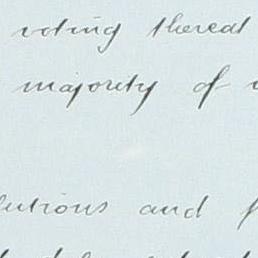 voting thereat
majority of
lutions and